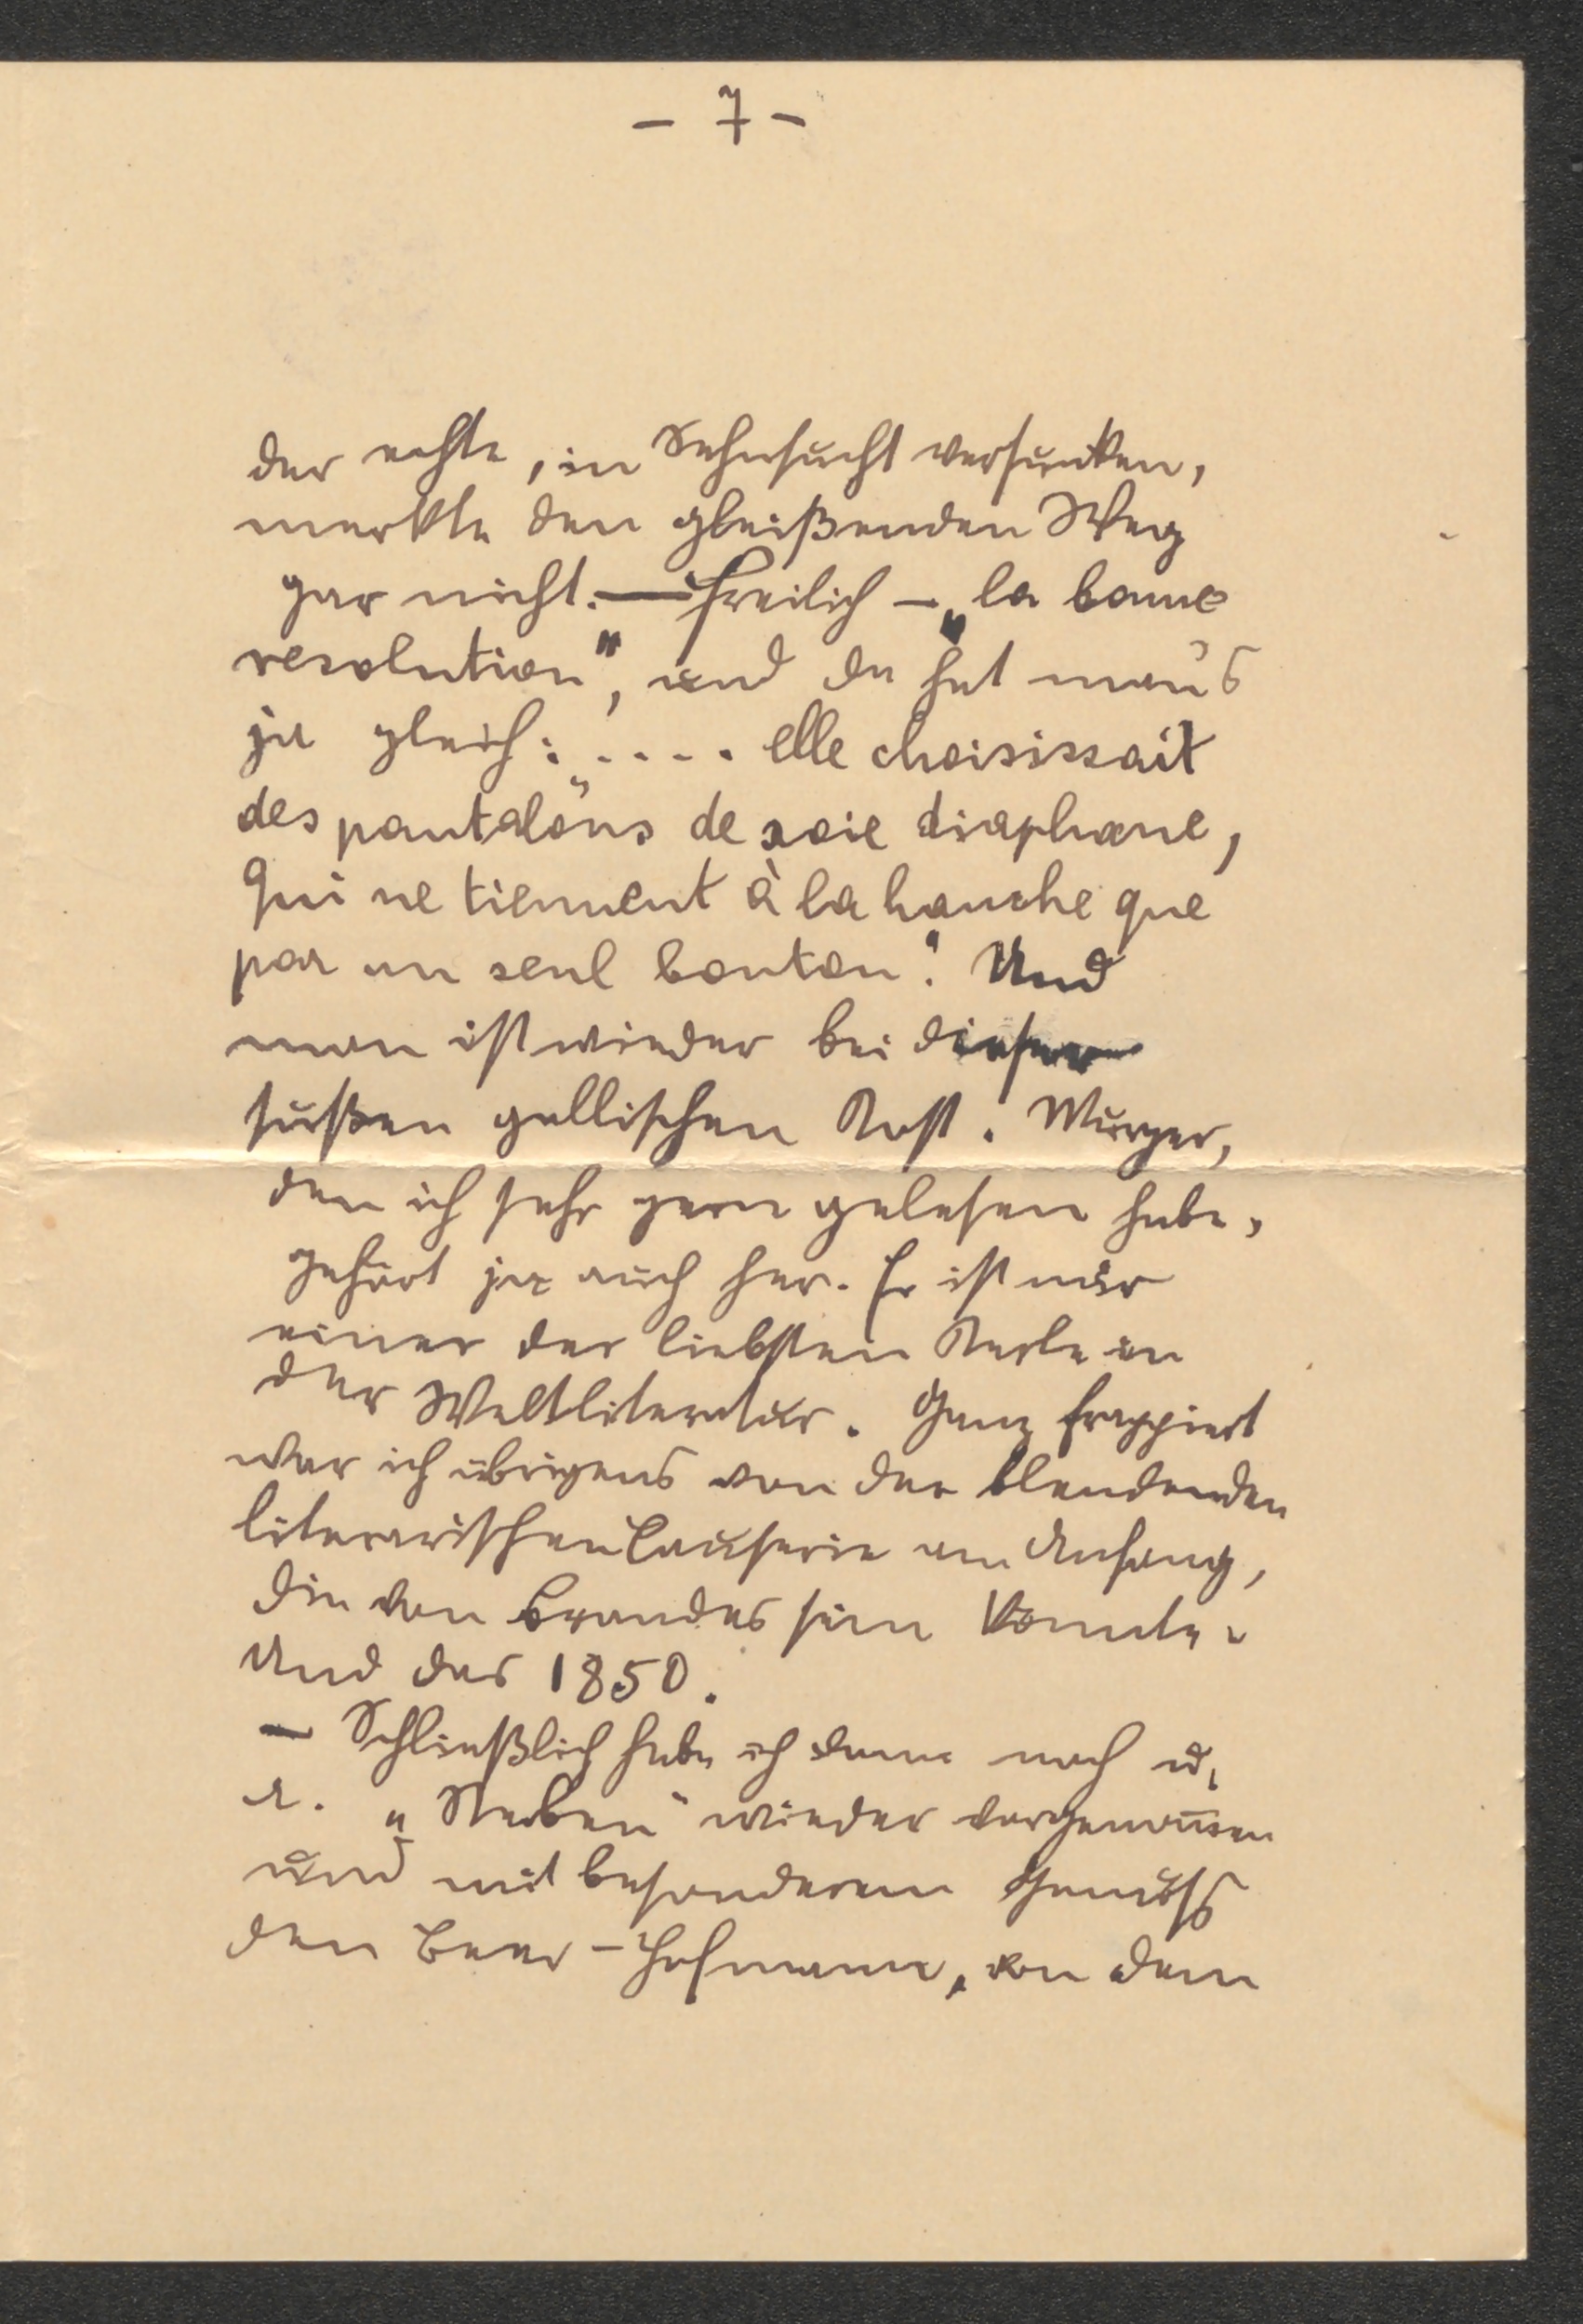 – 7 –
der echte, in Sehnsucht versunken,
merkte den gleißenden Weg
gar nicht. — Freilich – „la bonne
resolution“, und da hat man's
ja gleich: „.... elle choisissait
des pantalons de soie diaphane,
qui ne tiennent à la hanche que
par un seul bouton“. Und
man ist wieder bei dieser
süßen gallischen Kost. Murger,
den ich sehr gern gelesen habe,
gehört ja auch her. Er ist mir
einer der liebsten Kerle in
der Weltliteratur. Ganz frappiert
war ich übrigens von der blendenden
literarischen Causerie am Anfang,
die von Brandes sein könnte.
Und das 1850.
— Schließlich habe ich dann noch u.
a. „Sterben“ wieder vorgenom̄en
und mit besonderem Genuss
den Beer-Hofmann, von dem